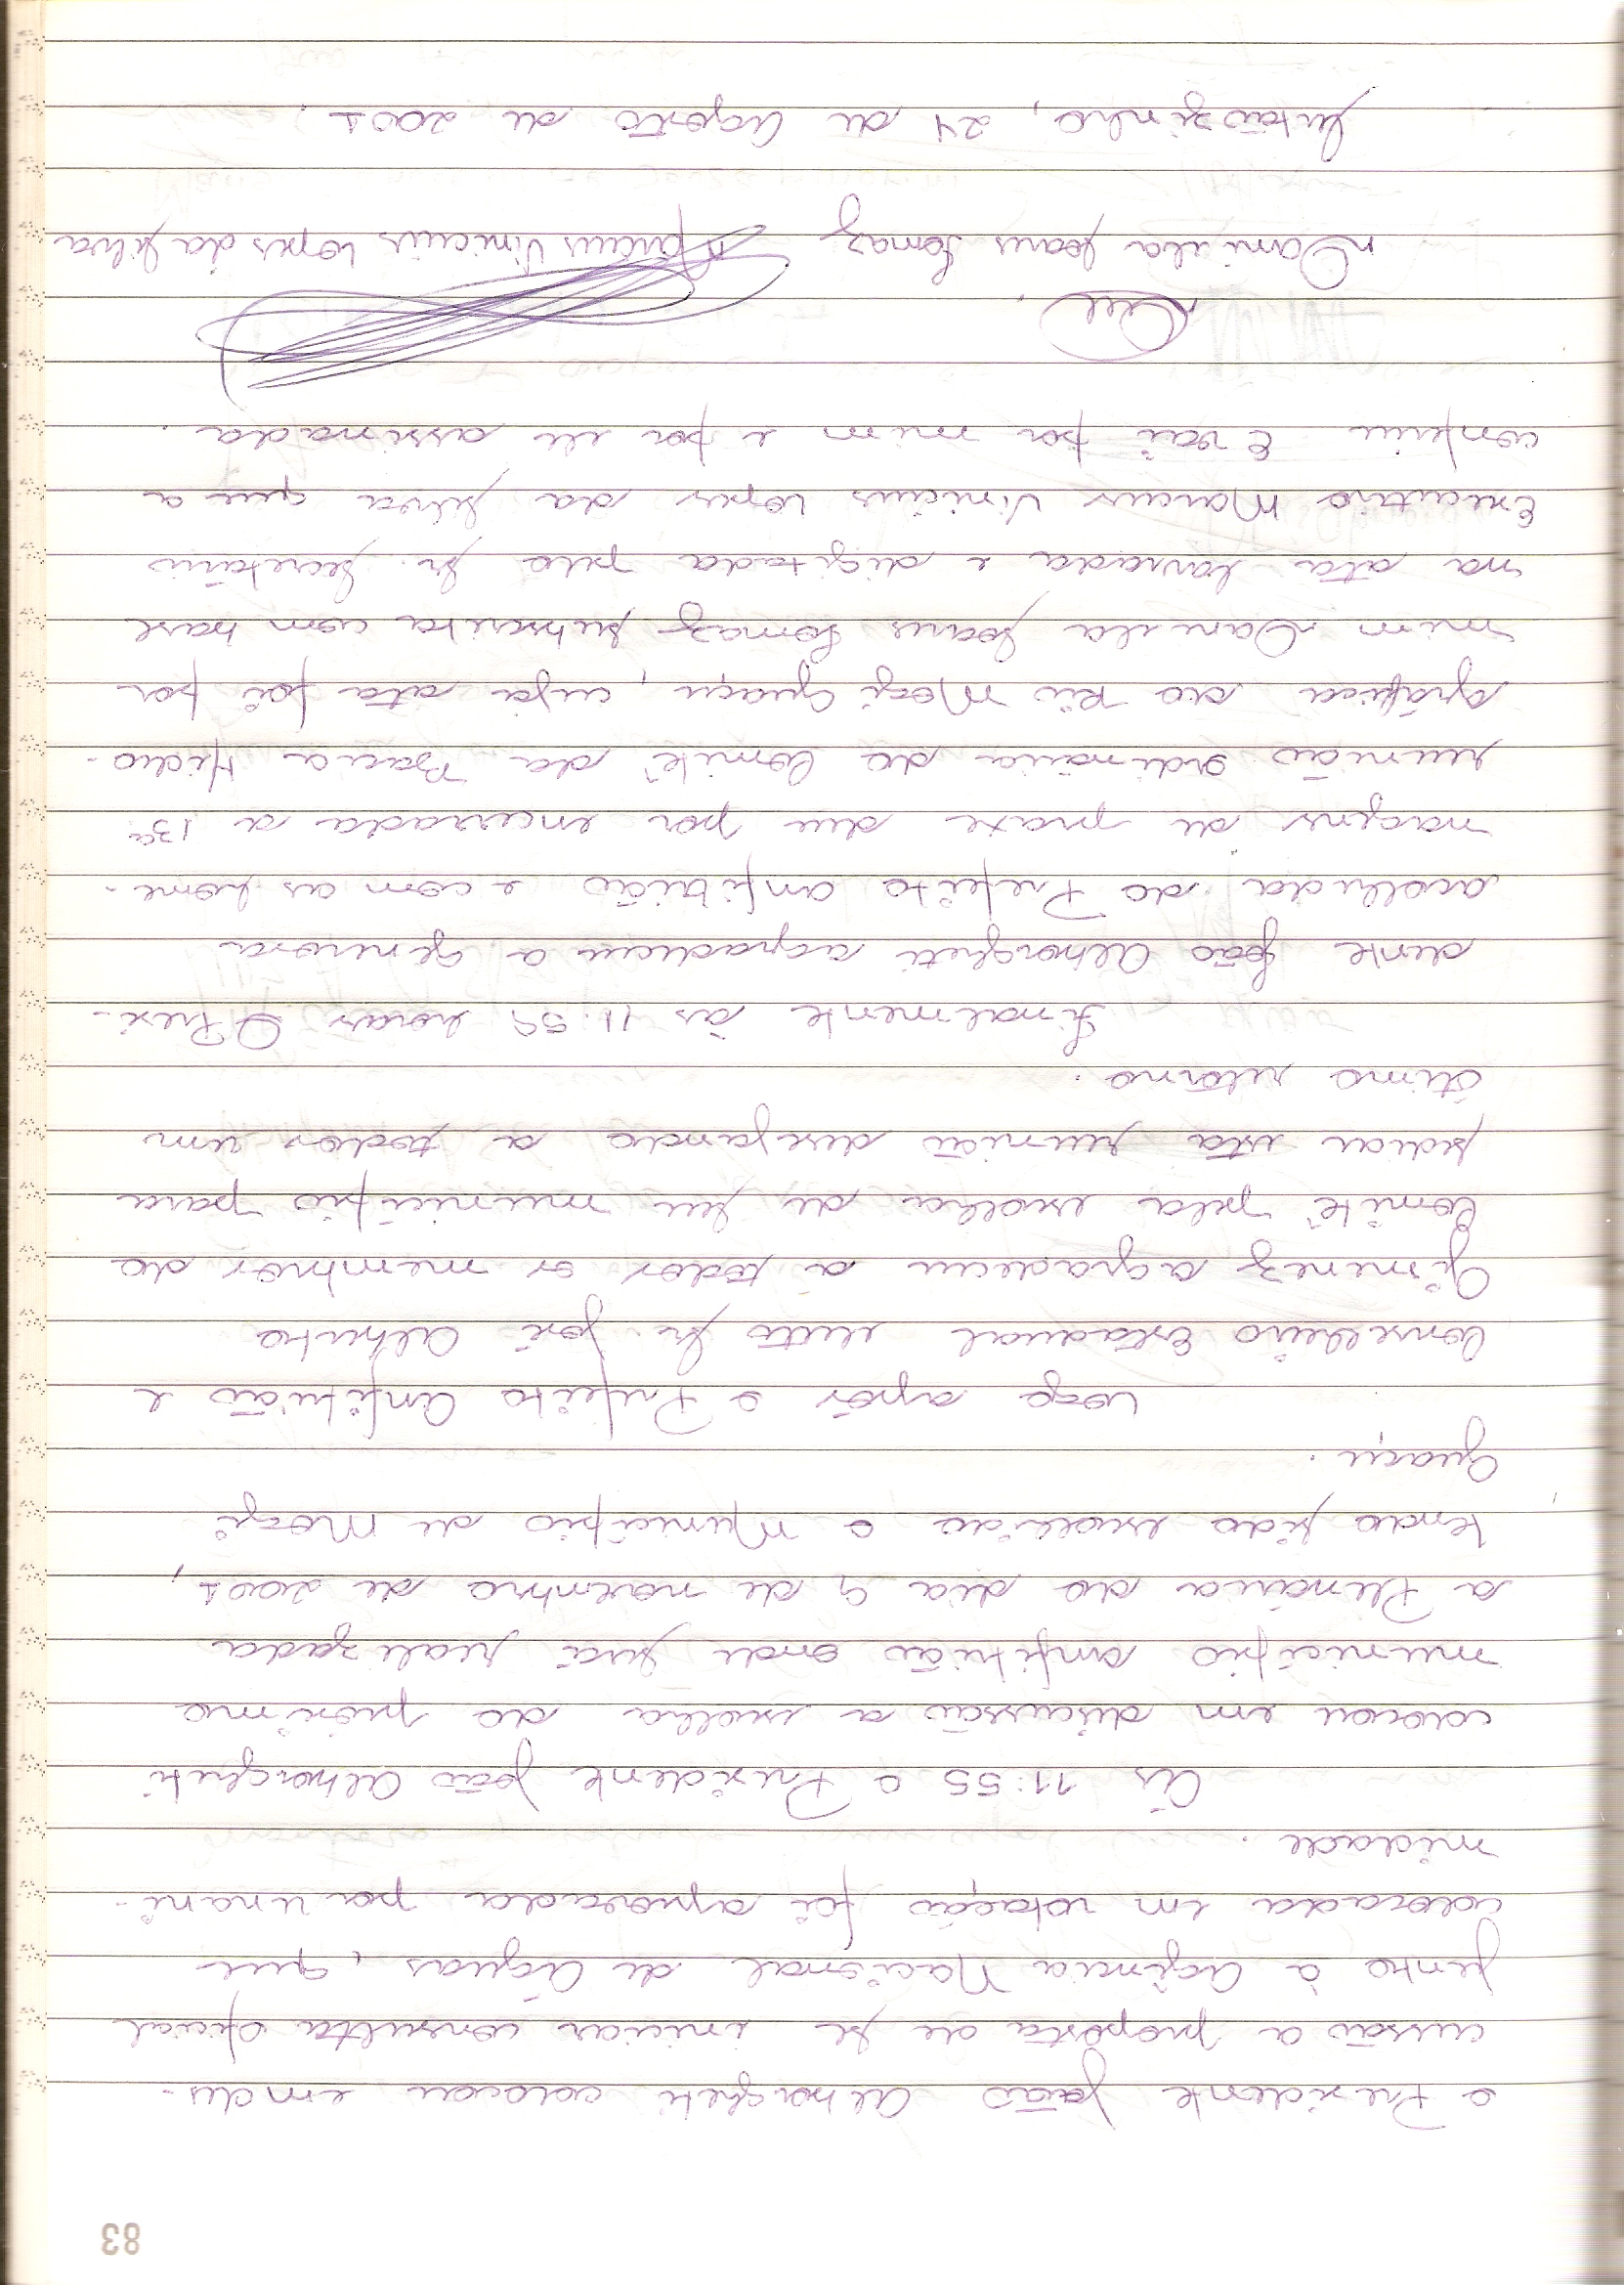 83
o Presidente João Alborgheti colocou em dis-
cussão a proposta de se iniciar consulta oficial
junto à Agência Nacional de Águas, que
colocada em votação foi aprovada por unani-
midade.
Às 11:55 o Presidente João Alborgheti
colocou em discussão a escolha do próximo
município anfitrião onde será realizada
a Plenária do dia 9 de novembro de 2001,
tendo sido escolhido o Município de Mogi
Guaçu.
Logo após o Prefeito Anfitrião e
Conselheiro Estadual eleito Sr. José Alberto
Gimenez agradeceu a todos os membros do
Comitê pela escolha de seu município para
sediar esta reunião desejando a todos um
ótimo retorno.
Finalmente às 11:59 horas O Presi-
dente João Alborgheti agradeceu a generosa
acolhida do Prefeito anfitrião e com as home-
nagens de praxe deu por encerrada a 13ª
reunião ordinária do Comitê da Bacia Hidro-
gráfica do Rio Mogi Guaçu, cuja ata foi por
mim Daniela Soares Tomaz subscrita com base
na ata lavrada e digitada pelo Sr. Secretário
Executivo Marcus Vinicius Lopes da Silva que a
conferiu E vai por mim e por ele assinada.
Daniela Soares Tomaz Marcus Vinicius Lopes da Silva
Sertãozinho, 24 de Agosto de 2001.